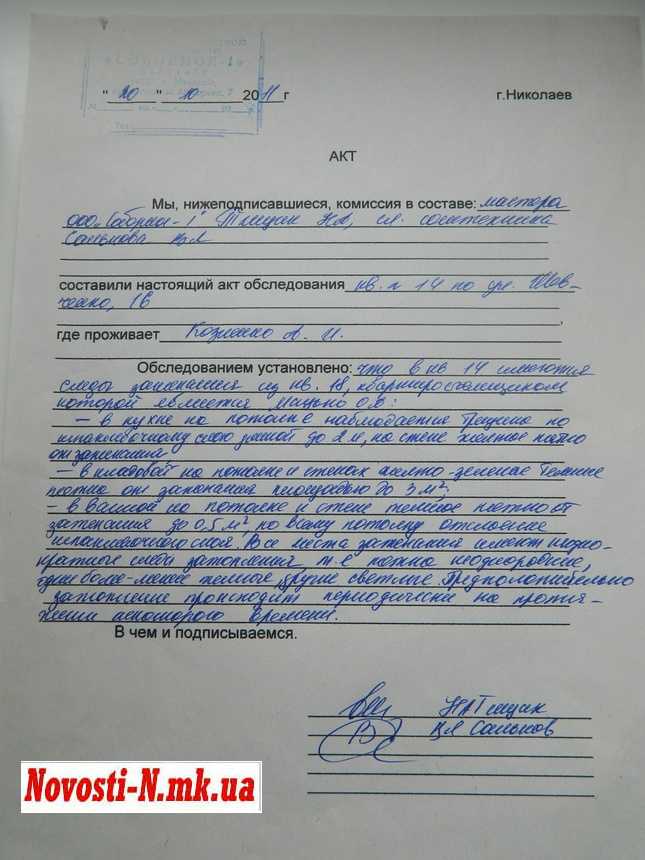 "20" 10 2011 г
г.Николаев
АКТ
Мы, нижеподписавшиеся, комиссия в составе: мастора
ооо „Соборная-1" Тищик НА, сл. сантехника
Санькова ВЛ
составили настоящий акт обследования кв. № 14 по ул. Шев-
ченко, 16
где проживает Козленко А. И.
Обследованием установлено: что в кв 14 имеются
следы затекания из кв. 18, квартиросъемщиком
которой является О.В:
– в кухне на потолке наблюдается трещина по
шпаклевочному слою длиной до 2 м, на стене желтое пятно
от затекания,
– в кладовой на потолке и стенах желто-зеленые темные
пятна от затекания площадью до 3 м²;
– в ванной на потолке и стене темное пятно от
затекания до 0,5 м², по всему потолку отслоение
шпаклевочного слоя. Все места затекания имеют неодно-
кратные следы затопления, т-е пятна неоднородные,
одни более-менее темные, другие светлые. Предположительно
затопление происходит периодически на протя-
жении некоторого времени.
В чем и подписываемся.
НАТищик
ВЛ Саньков
Novosti-N.mk.ua